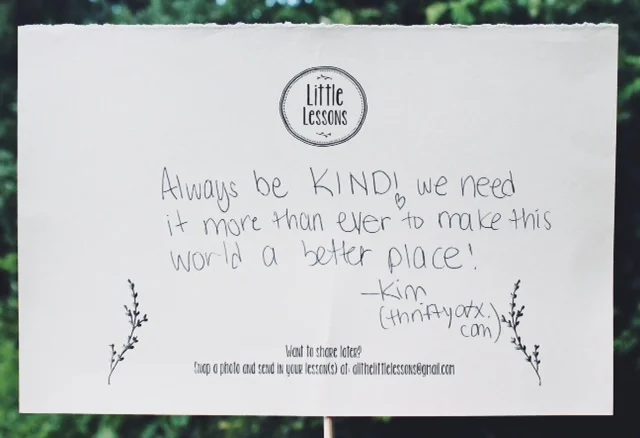 Little
Lessons
Always be KIND! we need
it more than ever to make this
world a better place!
-Kim
(thriftyatx.
com)
Want to share later?
Snap a photo and send in your lesson(s) at: allthelittlelessons@gmail.com